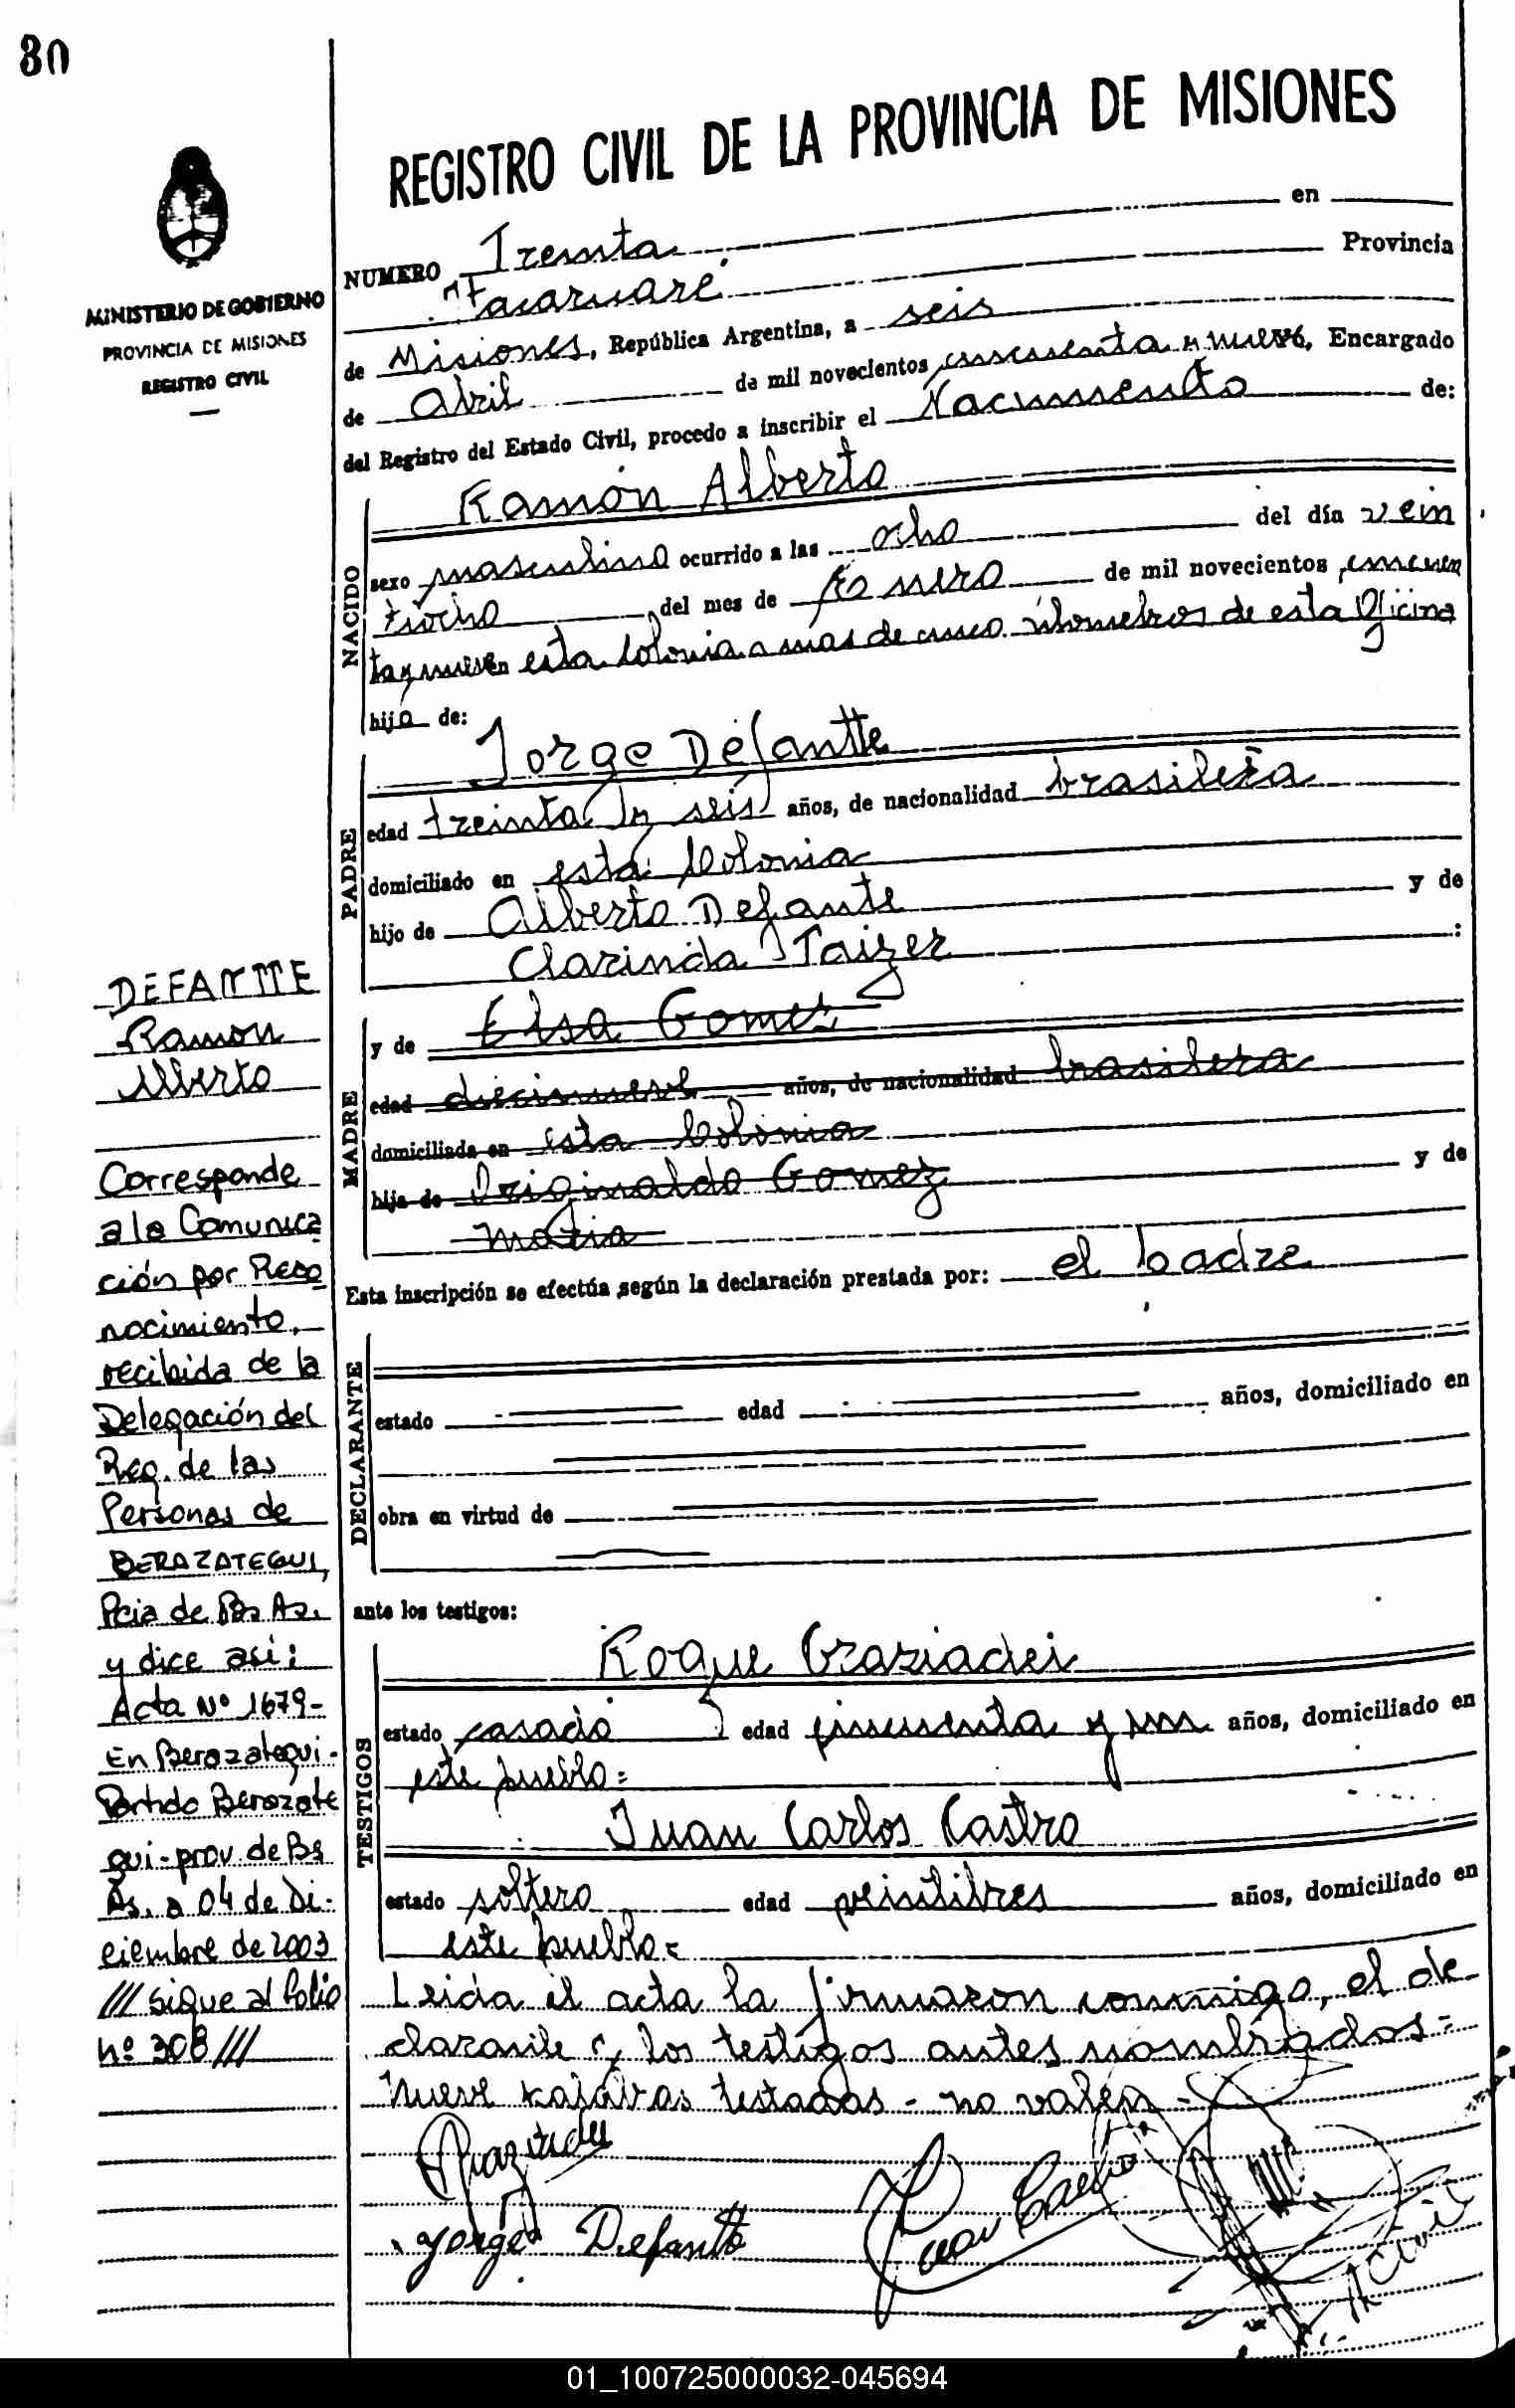 30
REGISTRO CIVIL DE LA PROVINCIA DE MISIONES
MINISTERIO DE GOBIERNO
PROVINCIA DE MISIONES
REGISTRO CIVIL
NUMERO Treinta en
Itacaruaré Provincia
de Misiones, República Argentina, a seis
de Abril de mil novecientos cincuenta y nueve, Encargado
del Registro del Estado Civil, procedo a inscribir el Nacimiento de:
NACIDO
Ramón Alberto
sexo masculino ocurrido a las ocho del día vein
tiocho del mes de Enero de mil novecientos cincuen
ta y nueve en esta Colonia a mas de cinco kilometros de esta Oficina
hijo de:
PADRE
Jorge Defantte
edad treinta y seis años, de nacionalidad brasilera
domiciliado en esta Colonia
hijo de Alberto Defante y de
Clarinda Taizer :
MADRE
y de Elsa Gomez
edad diecinueve años, de nacionalidad brasilera
domiciliada en esta Colonia
hija de Originaldo Gomez y de
Maria
Esta inscripción se efectúa según la declaración prestada por: el padre
DECLARANTE
estado edad años, domiciliado en
obra en virtud de
ante los testigos:
TESTIGOS
Roque Graziadei
estado casado edad cincuenta y un años, domiciliado en
este pueblo=
Juan Carlos Castro
estado soltero edad veintitres años, domiciliado en
este pueblo=
Leida el acta la firmaron conmigo, el de
clarante y los testigos antes nombrados=
Nueve palabras testadas - no valen -
Jorge Defantte
DEFANTTE
Ramon
Alberto
Corresponde
a la Comunica
ción por Reco
nocimiento,
recibida de la
Delegación del
Reg. de las
Personas de
BERAZATEGUI,
Pcia de Bs As.
y dice así:
Acta Nº 1679-
En Berazategui-
Partido Berazate
gui-prov. de Bs
As. a 04 de Di-
ciembre de 2003
/// sigue al folio
nº 308///
01_100725000032-045694